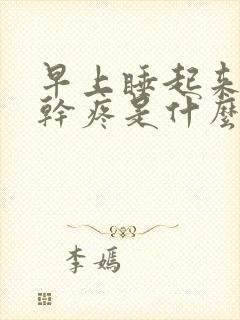 早上睡起来
幹疼是什麼
李嫣